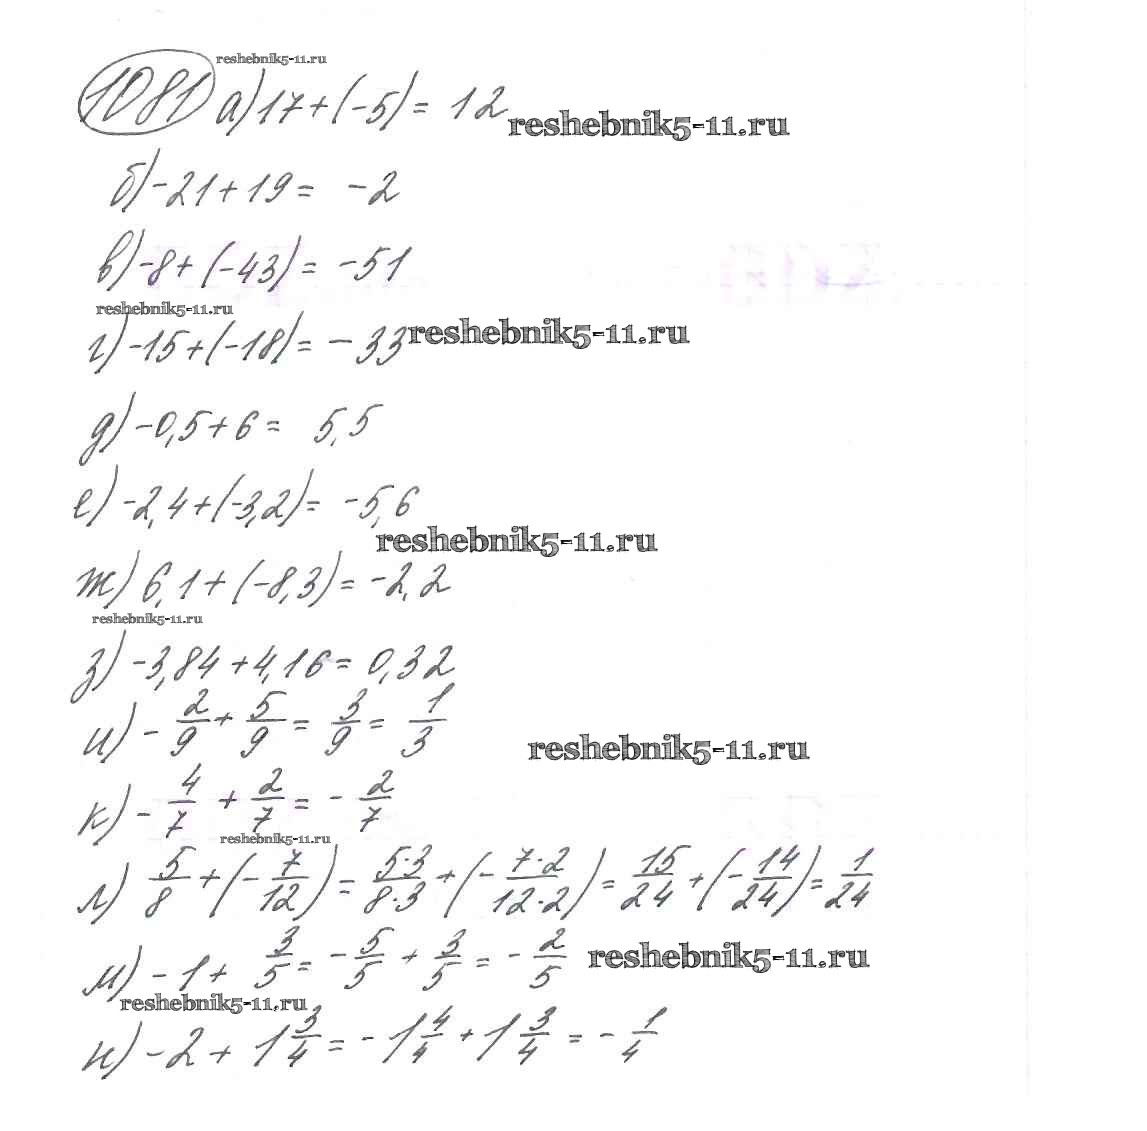 reshebnik5-11.ru
1081 а) 17+(-5)= 12
reshebnik5-11.ru
б) -21+19= -2
в) -8+(-43)= -51
reshebnik5-11.ru
г) -15+(-18)= -33
reshebnik5-11.ru
д) -0,5+6= 5,5
е) -2,4+(-3,2)= -5,6
reshebnik5-11.ru
ж) 6,1+(-8,3)= -2,2
reshebnik5-11.ru
з) -3,84+4,16= 0,32
и) -2/9+5/9=3/9=1/3
reshebnik5-11.ru
к) -4/7+2/7=-2/7
reshebnik5-11.ru
л) 5/8+(-7/12)=5·3/8·3+(-7·2/12·2)=15/24+(-14/24)=1/24
м) -1+3/5=-5/5+3/5=-2/5
reshebnik5-11.ru
reshebnik5-11.ru
н) -2+1 3/4=-1 4/4+1 3/4=-1/4